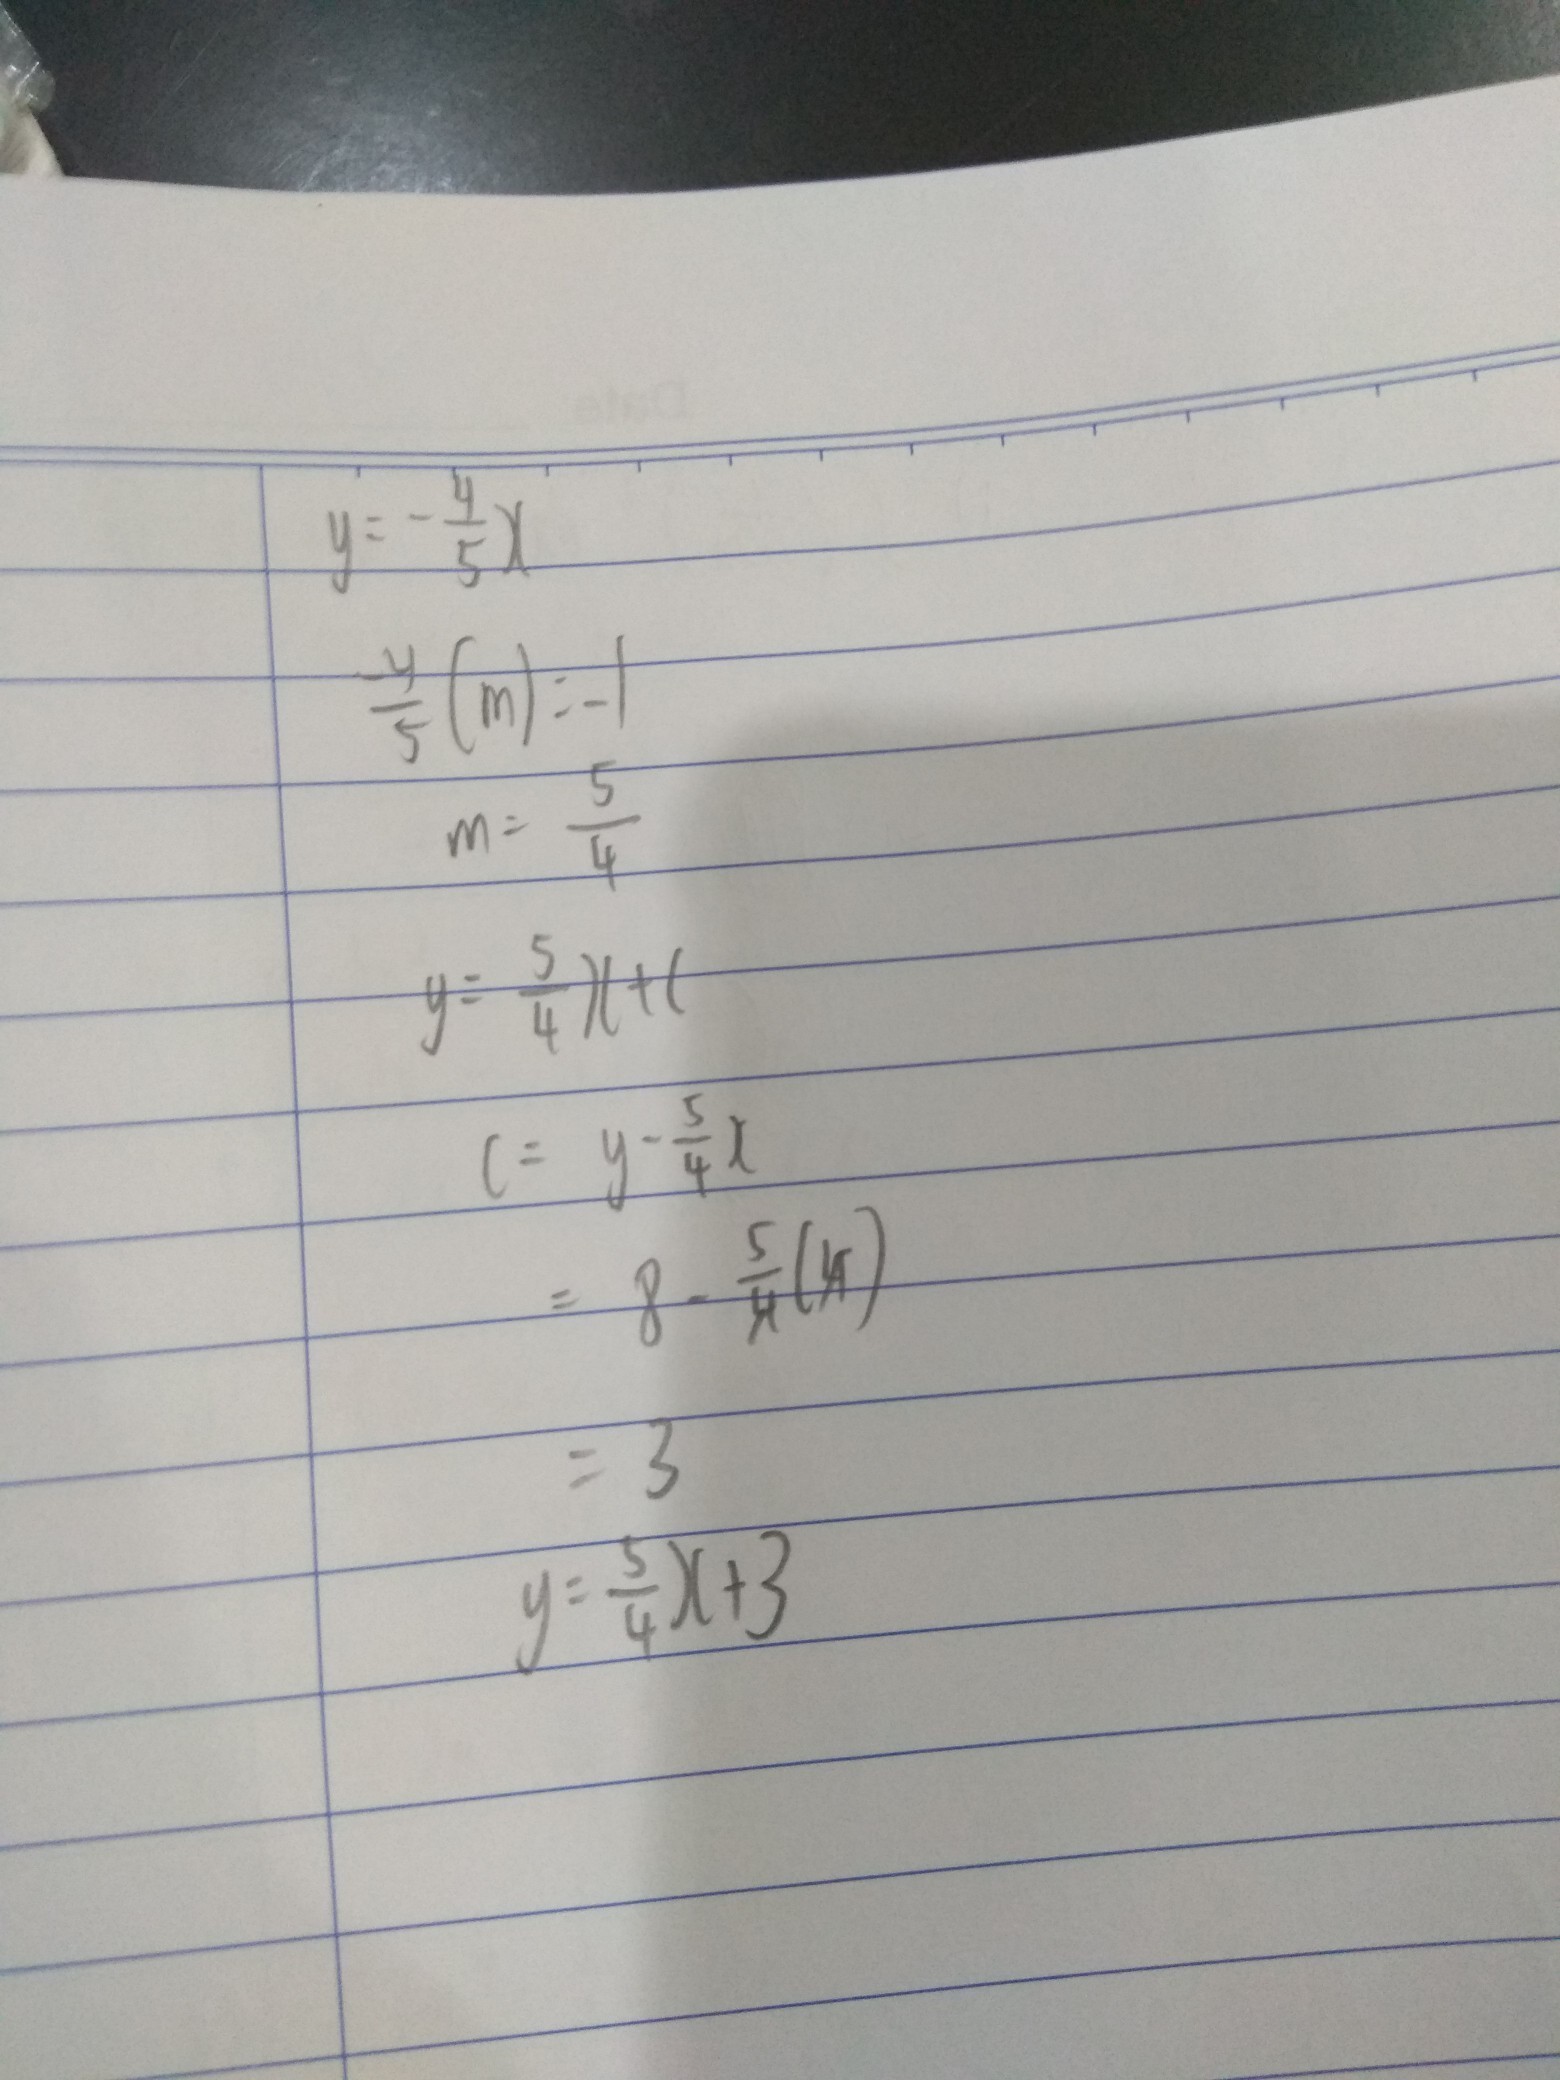 Date
y = -4/5 x
-4/5 (m) = -1
m = 5/4
y = 5/4 x + c
c = y - 5/4 x
= 8 - 5/4 (4)
= 3
y = 5/4 x + 3